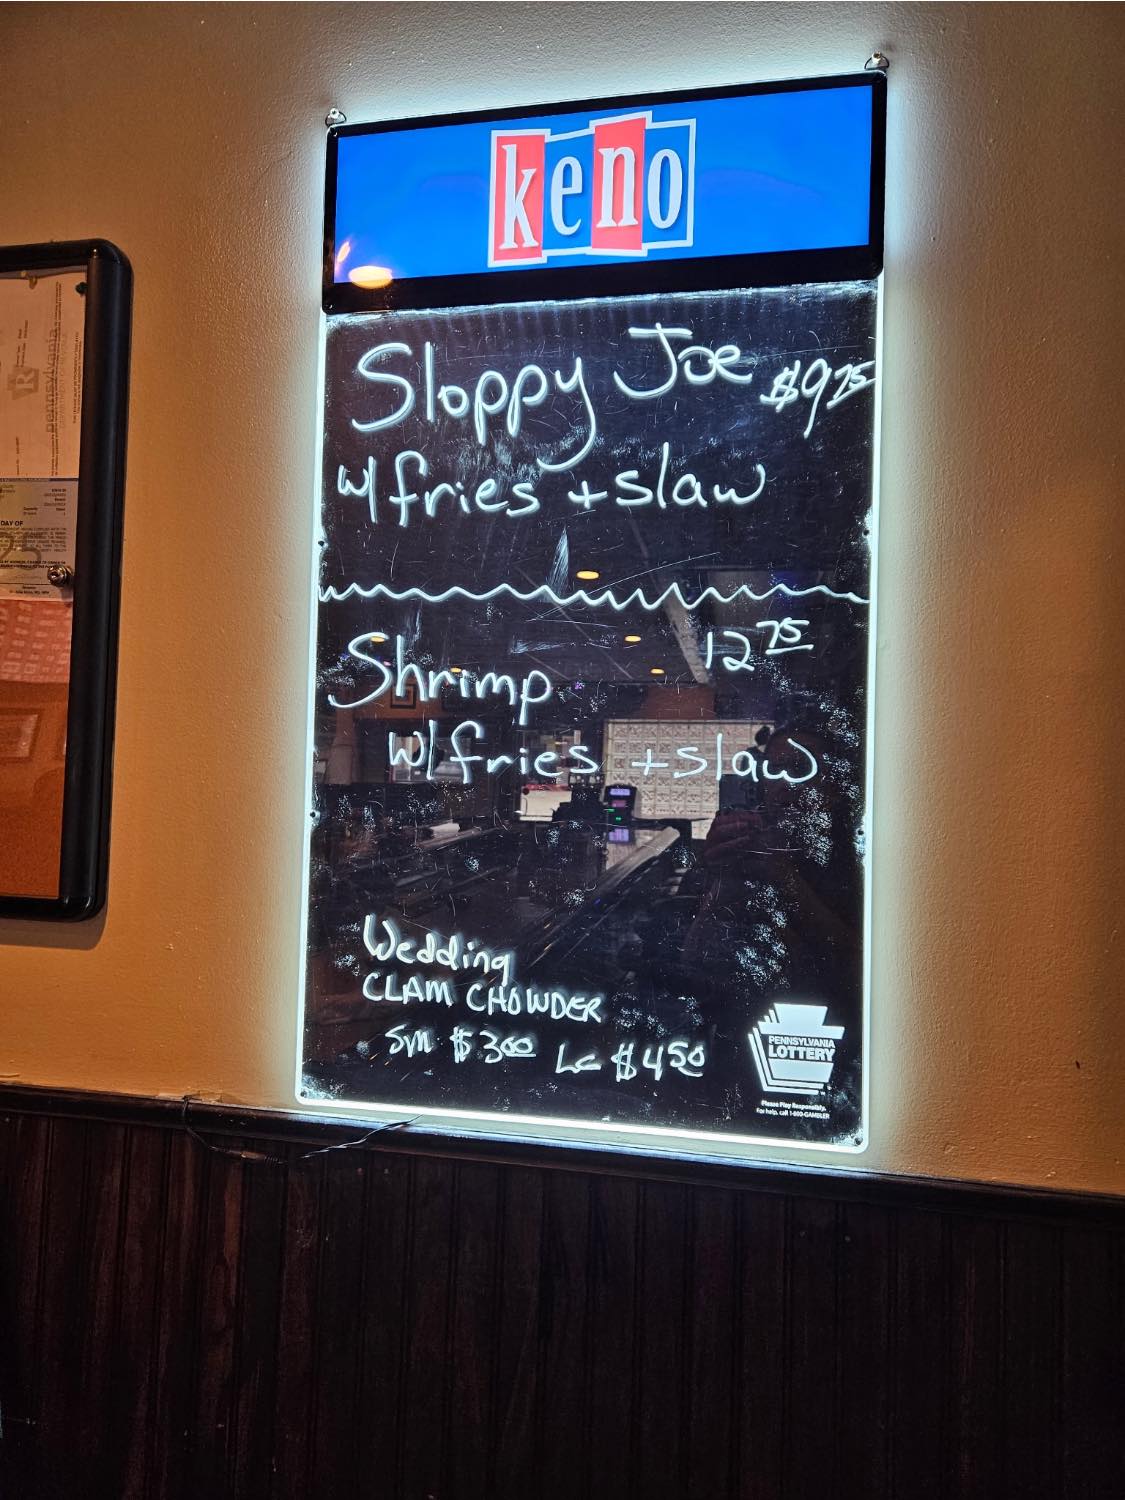 keno
Sloppy Joe $9 75
w/ fries + slaw
Shrimp 12 75
w/ fries + slaw
Wedding
CLAM CHOWDER
Sm $3 00 LG $4 50
PENNSYLVANIA
LOTTERY
Please Play Responsibly.
For help, call 1-800-GAMBLER
pennsylvania
DAY OF